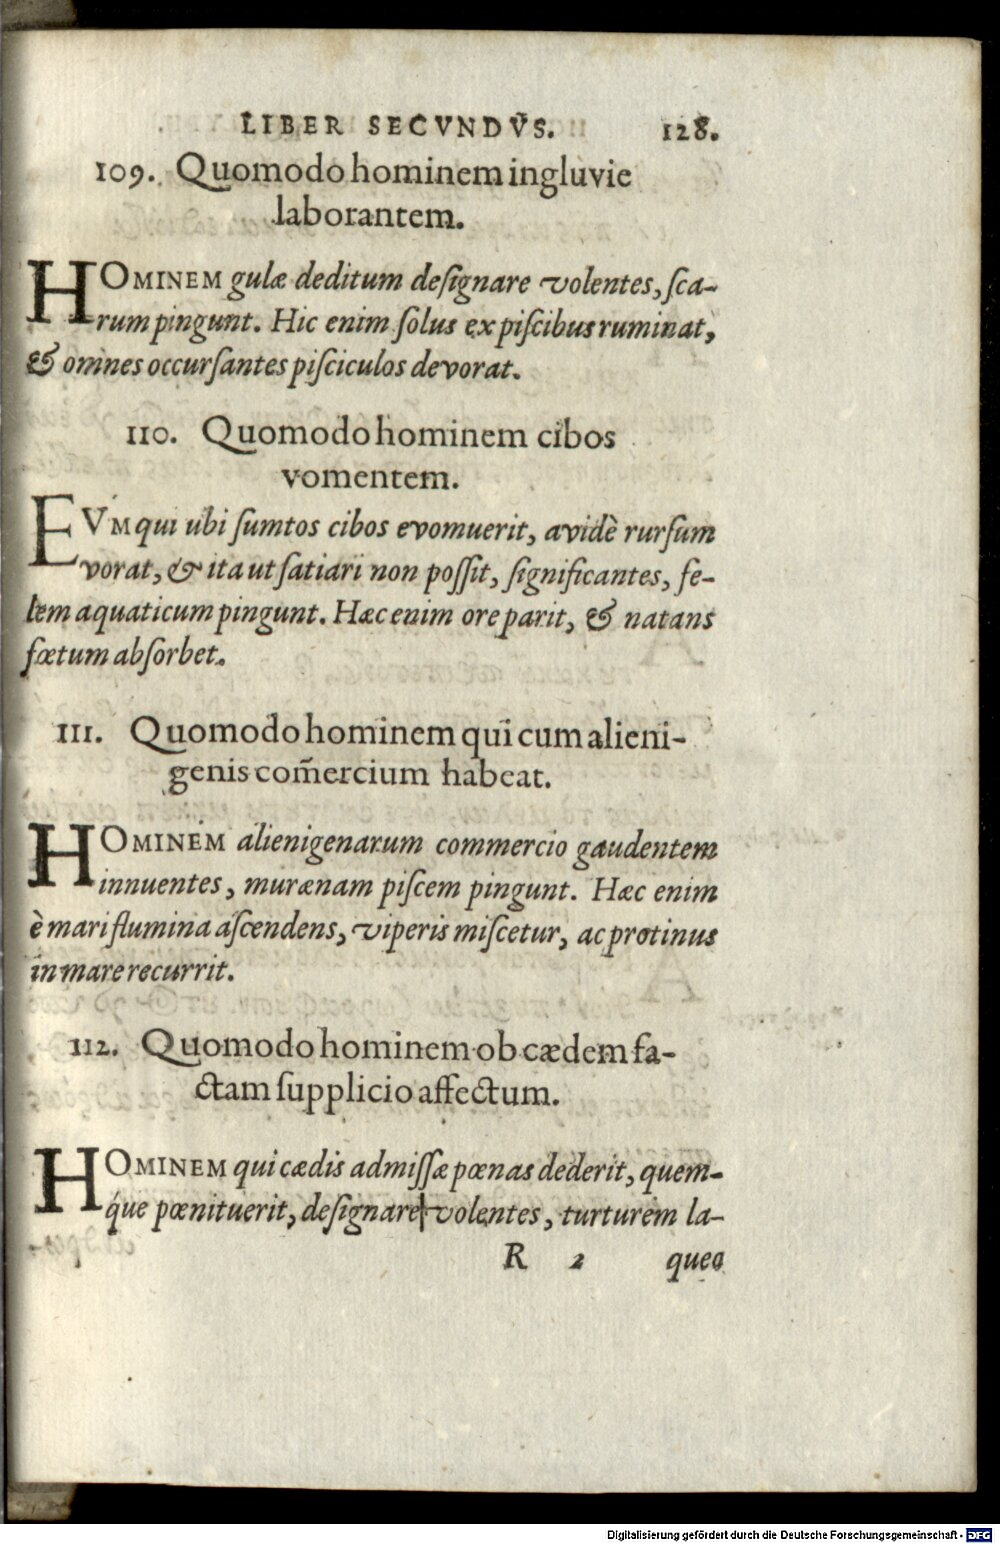 LIBER SECVNDVS. 128.
109. Quomodo hominem ingluvie
laborantem.
HOMINEM gulæ deditum deſignare volentes, ſca-
rum pingunt. Hic enim ſolus ex piſcibus ruminat,
& omnes occurſantes piſciculos devorat.
110. Quomodo hominem cibos
vomentem.
EVM qui ubi ſumtos cibos evomuerit, avidè rurſum
vorat, & ita ut ſatiari non poſſit, ſignificantes, fe-
lem aquaticum pingunt. Hæc enim ore parit, & natans
fœtum abſorbet.
111. Quomodo hominem qui cum alieni-
genis com̃ercium habeat.
HOMINEM alienigenarum commercio gaudentem
innuentes, murænam piſcem pingunt. Hæc enim
è mari flumina aſcendens, viperis miſcetur, ac protinus
in mare recurrit.
112. Quomodo hominem ob cædem fa-
ctam ſupplicio affectum.
HOMINEM qui cædis admiſſæ pœnas dederit, quem-
que pœnituerit, deſignare volentes, turturem la-
R 2 queo
Digitalisierung gefördert durch die Deutsche Forschungsgemeinschaft - DFG